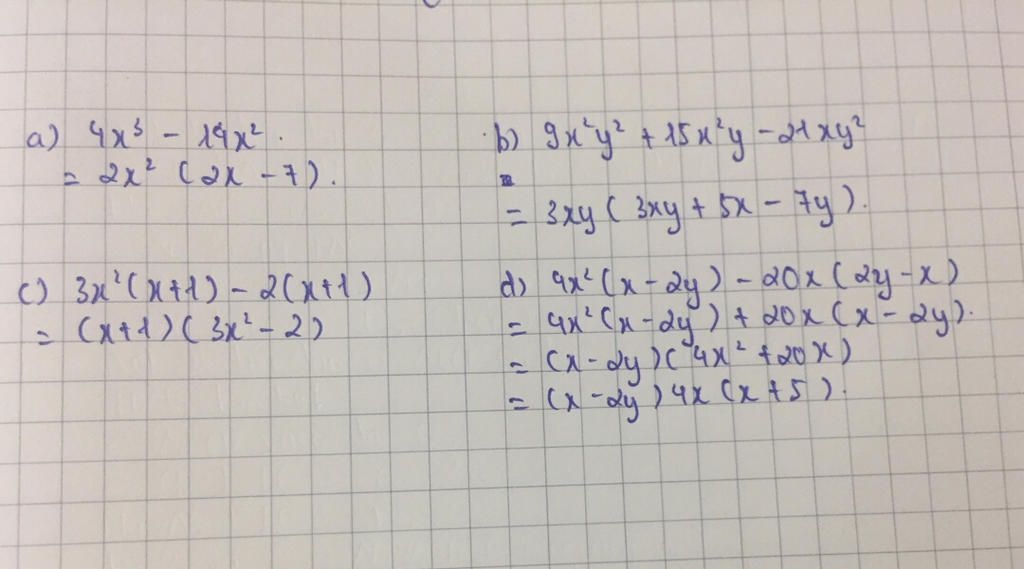 a) 4x³ - 14x².
= 2x² (2x - 7).
b) 9x²y² + 15x²y - 21xy²
=
= 3xy ( 3xy + 5x - 7y ).
c) 3x²(x+1) - 2(x+1)
= (x+1)( 3x² - 2)
d) 4x²(x - 2y) - 20x(2y - x)
= 4x²(x - 2y) + 20x(x - 2y).
= (x - 2y)(4x² + 20x)
= (x - 2y)4x(x + 5).